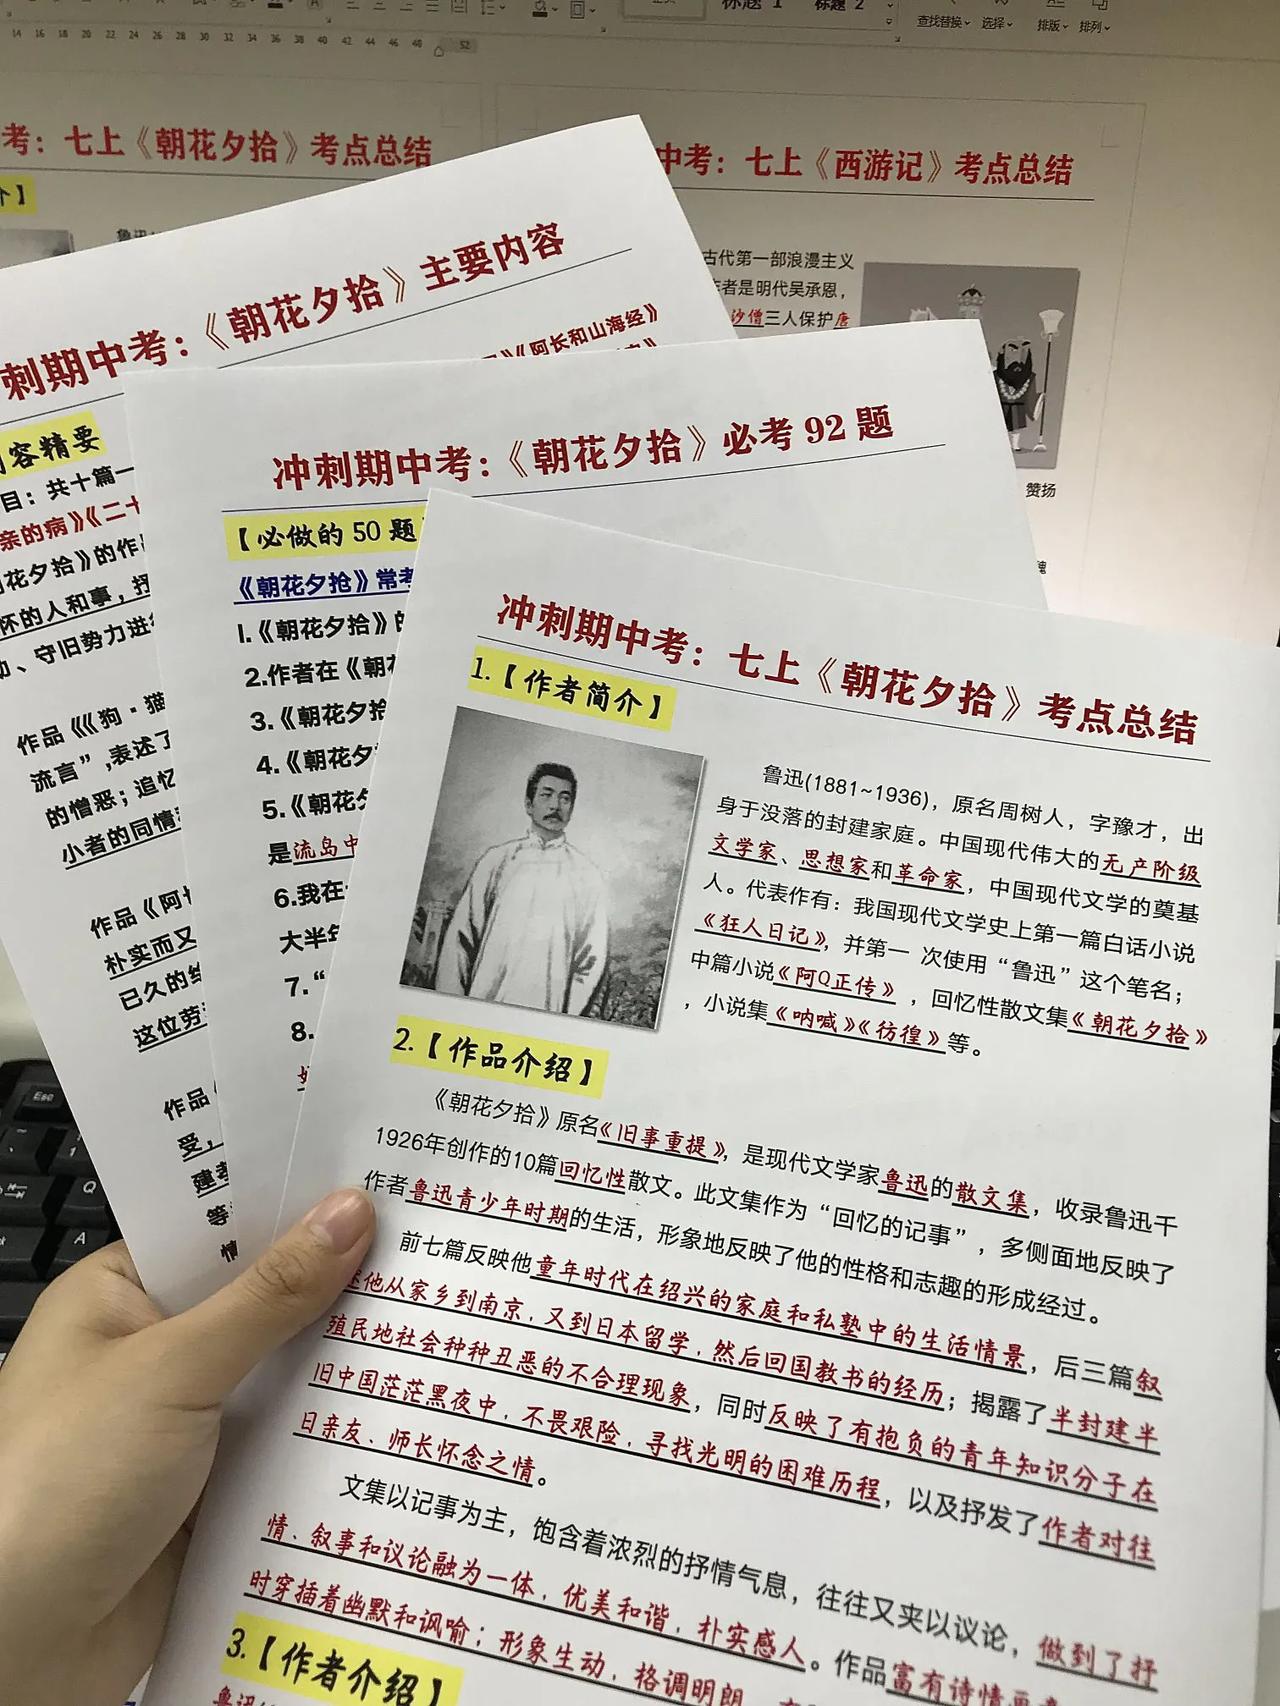 标题 1
标题 2
查找替换
选择
排版
排列
14 16 18 20 22 24 26 28 30 32 34 36 38 40 42 44 46 48
52
考：七上《朝花夕拾》考点总结
中考：七上《西游记》考点总结
介】
古代第一部浪漫主义
者是明代吴承恩，
沙僧三人保护唐
赞扬
刺期中考：《朝花夕拾》主要内容
《阿长和山海经》
容精要
目：共十篇一
亲的病》《二十
花夕拾》的作
怀的人和事，抒
、守旧势力进行
作品《《狗·猫
流言”,表述了
的憎恶；追忆
小者的同情
作品《阿长
朴实而又
已久的
这位劳
作品《
受，
建
等
情
冲刺期中考：《朝花夕拾》必考 92 题
【必做的 50 题
《朝花夕抢》常考
1.《朝花夕拾》的
2.作者在《朝花
3.《朝花夕拾
4.《朝花夕
5.《朝花夕
是流岛中
6.我在
大半年
7.“
8.
冲刺期中考：七上《朝花夕拾》考点总结
1.【作者简介】
鲁迅(1881~1936)，原名周树人，字豫才，出
身于没落的封建家庭。中国现代伟大的无产阶级
文学家、思想家和革命家，中国现代文学的奠基
人。代表作有：我国现代文学史上第一篇白话小说
《狂人日记》，并第一 次使用“鲁迅”这个笔名；
中篇小说《阿Q正传》 ，回忆性散文集《朝花夕拾》
，小说集《呐喊》《彷徨》等。
2.【作品介绍】
《朝花夕拾》原名《旧事重提》，是现代文学家鲁迅的散文集，收录鲁迅于
1926年创作的10篇回忆性散文。此文集作为“回忆的记事”，多侧面地反映了
作者鲁迅青少年时期的生活，形象地反映了他的性格和志趣的形成经过。
前七篇反映他童年时代在绍兴的家庭和私塾中的生活情景，后三篇叙
述他从家乡到南京，又到日本留学，然后回国教书的经历；揭露了半封建半
殖民地社会种种丑恶的不合理现象，同时反映了有抱负的青年知识分子在
旧中国茫茫黑夜中，不畏艰险，寻找光明的困难历程，以及抒发了作者对往
日亲友、师长怀念之情。
文集以记事为主，饱含着浓烈的抒情气息，往往又夹以议论，做到了抒
情、叙事和议论融为一体，优美和谐，朴实感人。作品富有诗情画意
时穿插着幽默和讽喻；形象生动，格调明朗
3.【作者介绍】
Esc
Q
A